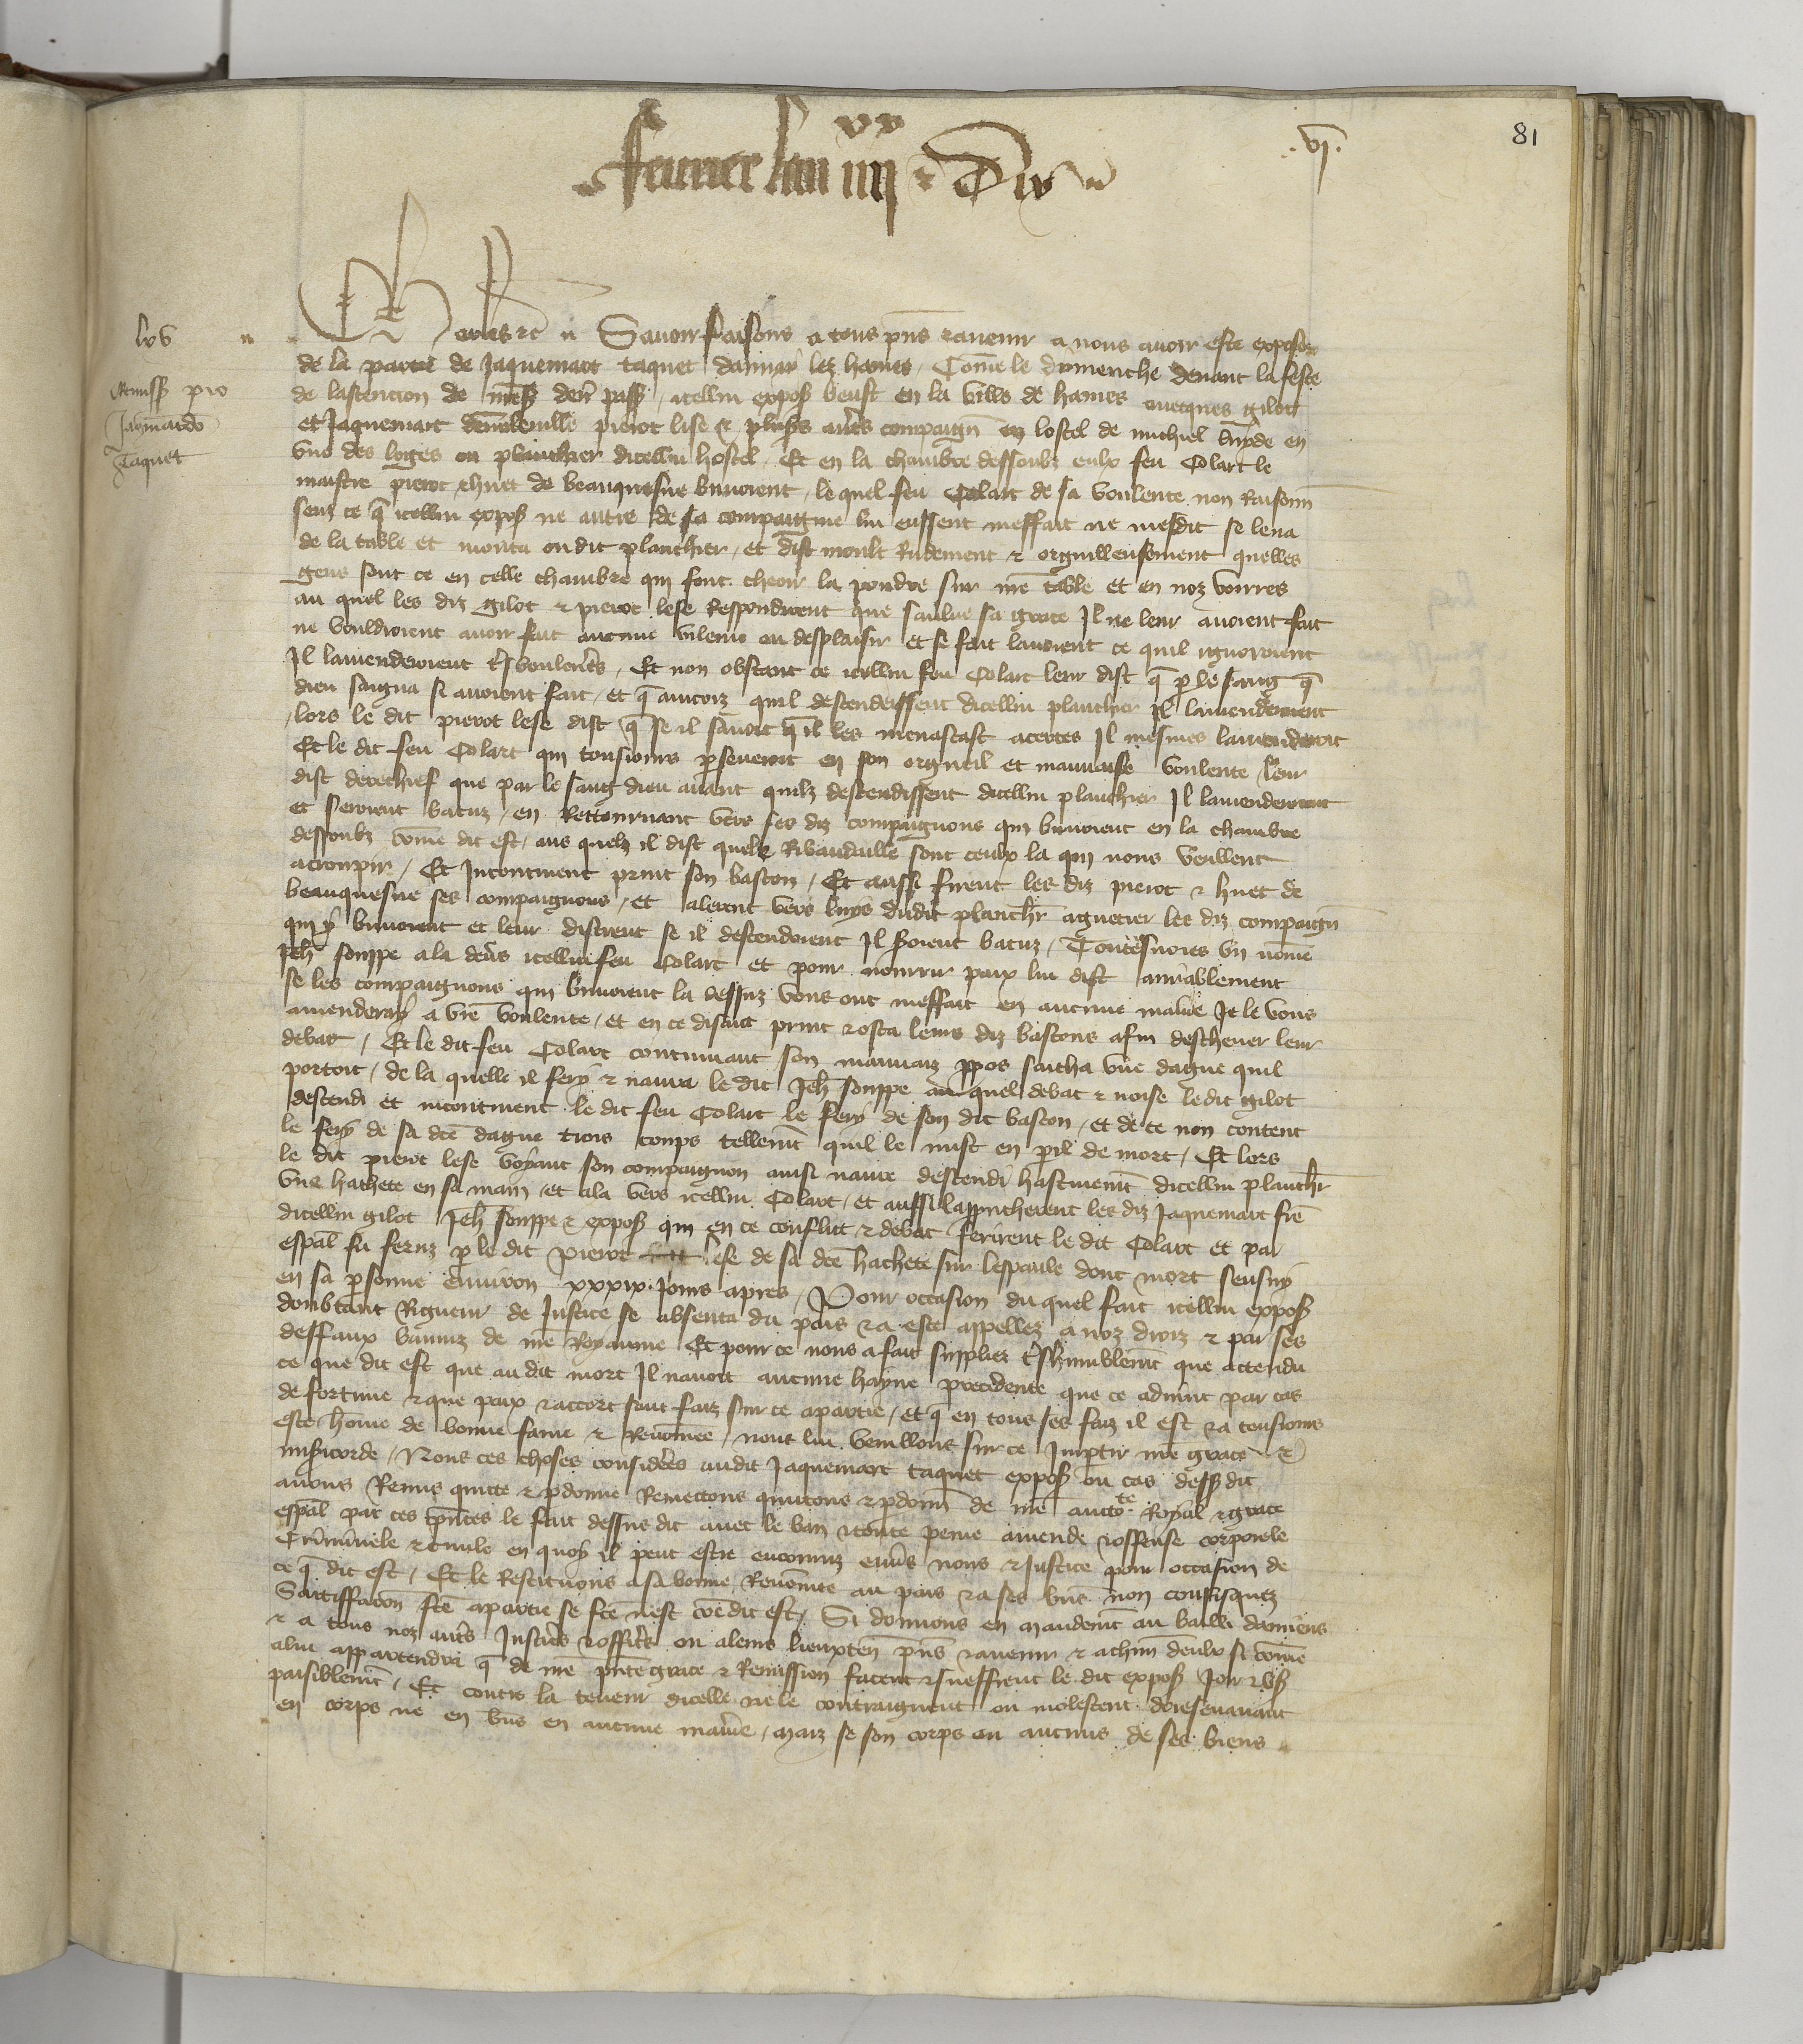 81
.vj.
feurier lan iiij xx & dix
lxv
Remiss pro
Jaqmardo
Taquet
Charles &c Sauoir faisons a tous pns & auenir a nous auoir este expose
de la partie de Jaquemart taquet dannay lez hames Come le dymenche deuant la feste
de lascencion de mess derr pass icellui expos beust en la ville de hames auecques gilot
et Jaquemart pierot lese & plusrs autrs compaign en lostel de michiel en
vne des loges ou planchier dicellui hostel Et en la chambre dessoubz eulx feu Colart le
maistre pierot & huet de beauquesne buuoient lequel feu Colart de sa voulente non Raisonn
senz ce q icellui expos ne autre de sa compaignie lui eussent meffait ne mesdit se leua
de la table et monta oudit planchier et dist moult Rudement & orguilleusement quelles
gens sont ce en celle chambre qui font cheoir la poudre sur nre table et en noz voirres
au quel les diz gilot & pierot lese Respondirent que saulue sa grace Il ne leur auoient fait
ne vouldroient auoir fait aucune vilenie ou desplaisir et se fait lauoient ce quil ignoroient
Il lamenderoient trs voulentrs Et non obstant ce icellui feu Colart leur dist q p le sang q
dieu saigna si auoient fait et q aincoiz quil descendeissent dicellui planchier Il lamenderoient
lors le dit pierot lese dist q se il sauoit q il les menacast acertes Il mesmes lamenderoit
Et le dit feu Colart qui tousiours pseueroit en son orgueil et mauuaise voulente leur
dist derechief que par le sang dieu auant quilz descendissent dicellui planchier Il lamenderoient
et seroient batuz en Retournant vers ses diz compaignons qui buuoient en la chambre
dessoubz come dit est aus quelz il dist quelz Ribaudaille sont ceulx la qui nous veullent
acroupir Et Incontinent print son baston Et aussi firent les diz pierot & huet de
beauquesne ses compaignons et alerent vers luys dudit planchr aguetier les diz compaign
qui y buuoient et leur distrent se il descendoient Il soient batuz Toutesuoies vn nome
Jeh souppe ala deus icellui feu Colart et pour nourrir paix lui dist amiablement
se les compaignons qui buuoient la dessuz vous ont meffait en aucune maniere Je le vous
amenderay a vre voulente et en ce disant print & osta leurs diz bastons afin descheuer leur
debat Et le dit feu Colart continuant son mauuaiz ppos saicha vne dague quil
portoit de la quelle il fery & naura le dit Jeh souppe au quel debat & noise ledit gilot
descendi et incontinent le dit feu Colart le fery de son dit baston et de ce non content
le fery de sa dce dague trois coups tellemt quil le mist en pil de mort Et lors
le dit pierot lese voyant son compaignon ainsi naure descendi hastiuemt dicellui planchr
vne hachete en sa main et ala vers icellui Colart et aussi lapprocherent les diz Jaquemart fre
dicellui gilot Jeh souppe & expos qui en ce conflict & debat ferirent le dit Colart et par
espal fu feruz p le dit pierot lese de sa dce hachete sur lespaule dont mort sensuy
en sa psonne enuiron xxxix Jours apres Pour occasion du quel fait icellui expos
doubtant Rigueur de Justice se absenta du pais & a este appellez a noz droiz & par ses
deffaux banniz de nre Royaume Et pour ce nous a fait supplier trshumblemt que attendu
ce que dit est que au dit mort Il nauoit aucune hayne precedente que ce aduint par cas
de fortune & que paix & accort sont faiz sur ce a partie et q en tous ses faiz il est & a tousiours
este home de bonne fame & Renomee nous lui veuillons sur ce Impartir nre grace &
misicorde Nous ces choses considerees audit Jaquemart taquet expos ou cas dess dit
auons Remis quitte & pdonne Remettons quittons & pdonn de nre auctote Royal & grace
espal par ces pntes le fait dessus dit auec le ban & toute peine amende & offense corporele
Criminele & ciuile en quoy il peut estre encouruz enuers nous & Justice pour occasion de
ce q dit est Et le Restituons a sa bonne Renomee au pais & a ses bns non confisquez
Satisfaccon fce a partie se fce nest coe dit est Si donnons en mandemt au bailli damiens
& a tous noz autrs Justicrs & officrs ou a leurs lieuxten pns & auenir & a chun deulx si come
a lui appartendra q de nre pnte grace & Remission facent & sueffrent le dit expos Joir & us
paisiblemt Et contre la teneur dicelle ne le contraignent ou molestent doresenauant
en corps ne en bns en aucune manire maiz se son corps ou aucuns de ses biens